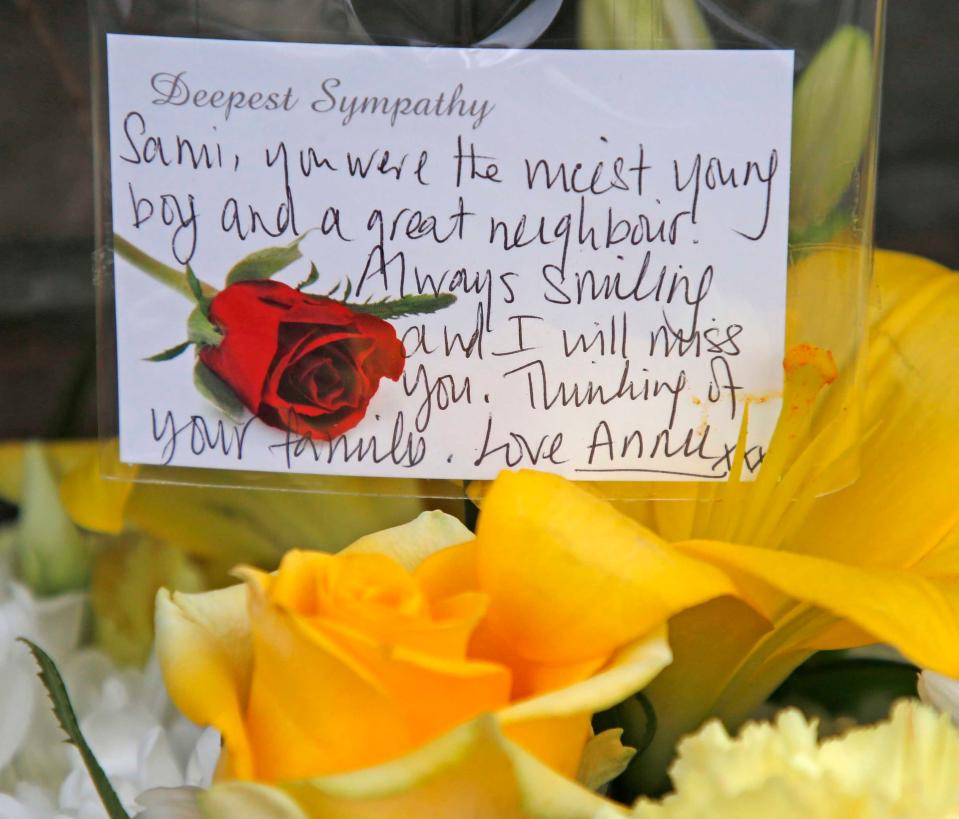 Deepest Sympathy
Sami, you were the nicest young
boy and a great neighbour!
Always smiling
and I will miss
you. Thinking of
your family. Love Annie xx